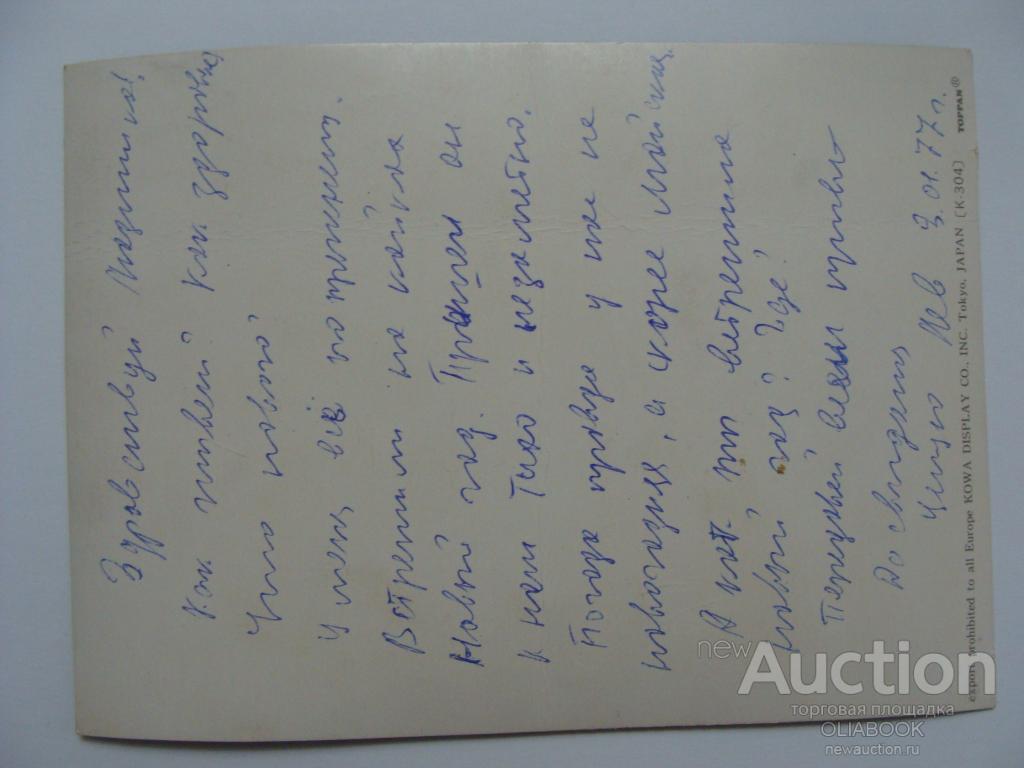 Здравствуй Мазишка!
Как живёшь? Как здоровье
Что нового?
У меня всё по прежнему.
Встретили на
Новый год. Пришел он
к нам тихо и незаметно.
Погода правда у нас не
новогодняя, а скорее майская
А как ты встретила
новый год? Где?
Передавай всем привет
До свидания
Целую Лев 3.01.77 г.
export prohibited to all Europe KOWA DISPLAY CO., INC. Tokyo, JAPAN [K-304] TOPPAN®
newAuction
торговая площадка
OLIABOOK
newauction.ru